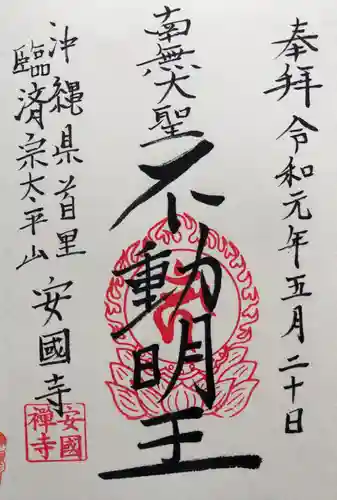 奉拝 令和元年五月二十日
南無大聖
不動明王
沖縄県首里
臨済宗太平山
安國寺
安國
禅寺